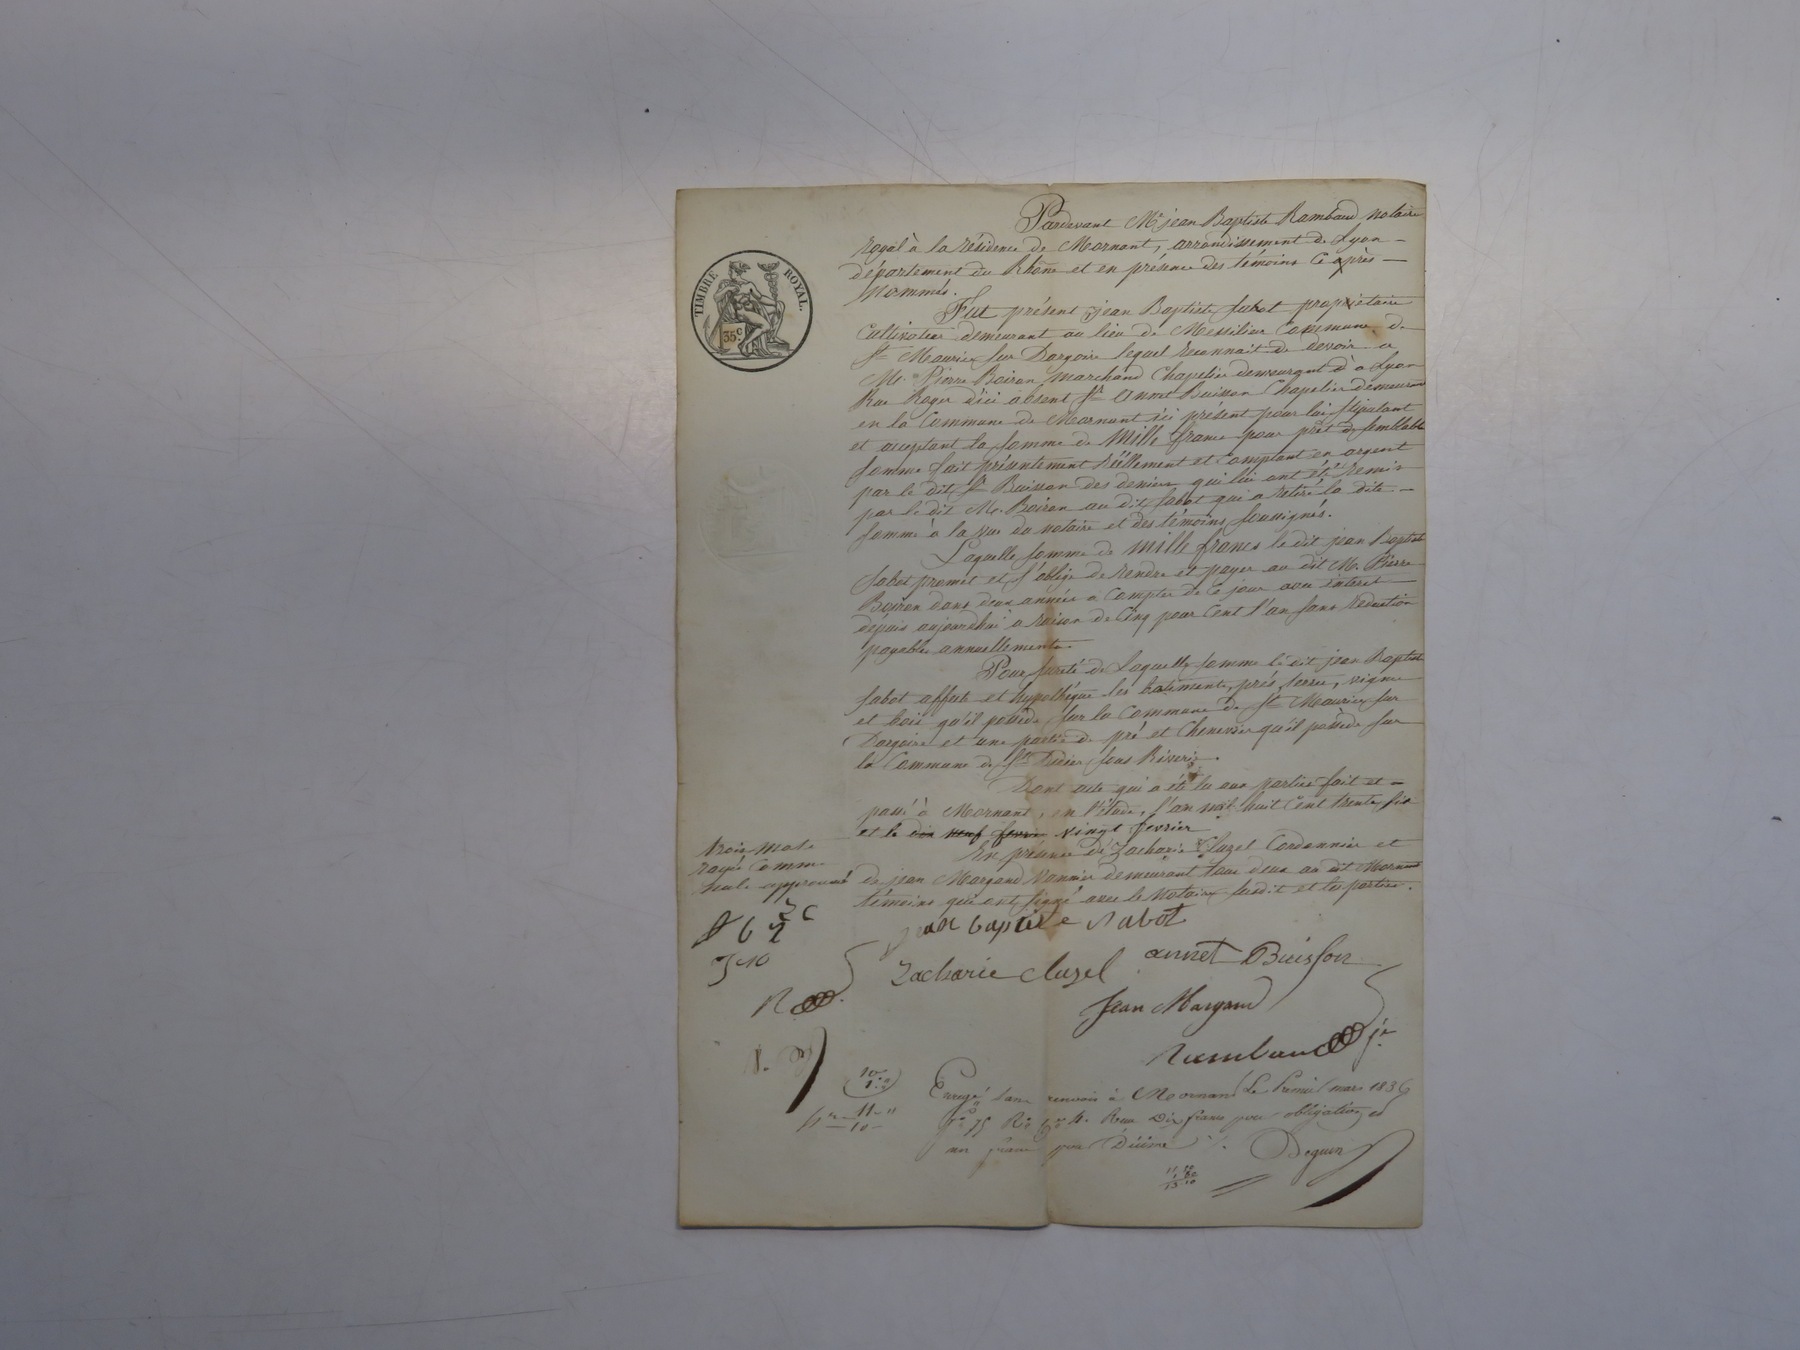 Pardevant Me jean Baptiste Rambaud notaire
royal à la résidence de Mornant, arrondissement de Lyon
département du Rhône et en présence des témoins ci après
nommés.
TIMBRE ROYAL.
35 c.
Fut présent jean Baptiste Sabot propriétaire
cultivateur demeurant au lieu de Messilieux Commune de
St Maurice sur Dargoire lequel reconnait de devoir a
M. Pierre Boiron marchand Chapelier demeurant à Lyon
Rue Roger d'ici absent Sr Annet Buisson Chapelier demeurant
en la Commune de Mornant ici présent pour lui stipulant
et acceptant la somme de Mille francs pour prêt de semblable
somme fait présentement réellement et comptant en argent
par le dit Sr Buisson des deniers qui lui ont été remis
par le dit M. Boiron au dit Sabot qui a retiré la dite
somme à la vue du notaire et des témoins soussignés.
Laquelle somme de mille francs le dit jean Baptiste
Sabot promet et s'oblige de rendre et payer au dit M. Pierre
Boiron dans deux années a compter de ce jour avec interet
depuis aujourdhui a raison de Cinq pour Cent l'an sans reduction
payable annuellement.
Pour sureté de Laquelle somme le dit jean Baptiste
Sabot affecte et hypothéque les batiments, prés, terres, vignes
et bois qu'il possède sur la Commune de St Maurice sur
Dargoire et une partie de pré et Chenevier qu'il possède sur
la Commune de St Didier sous Riverie.
Dont acte qui a été lu aux parties fait et
passé à Mornant, en l'étude, l'an mil huit Cent trente six
et le dix neuf fevrier vingt fevrier
En présence de Zacharie Cluzel Cordonnier et
de jean Margand Vannier demeurant tous deux au dit Mornant
témoins qui ont signé avec le Notaire susdit et les parties.
trois mots
rayés comme
nuls approuvé
jean baptiste Sabot
annet Buisson
Zacharie Cluzel
Jean Margand
Rambaud
Enregé sans renvois à Mornant Le Premier mars 1836
fo 75 Ro Reçu Dix francs pour obligation et
un franc pour Décime